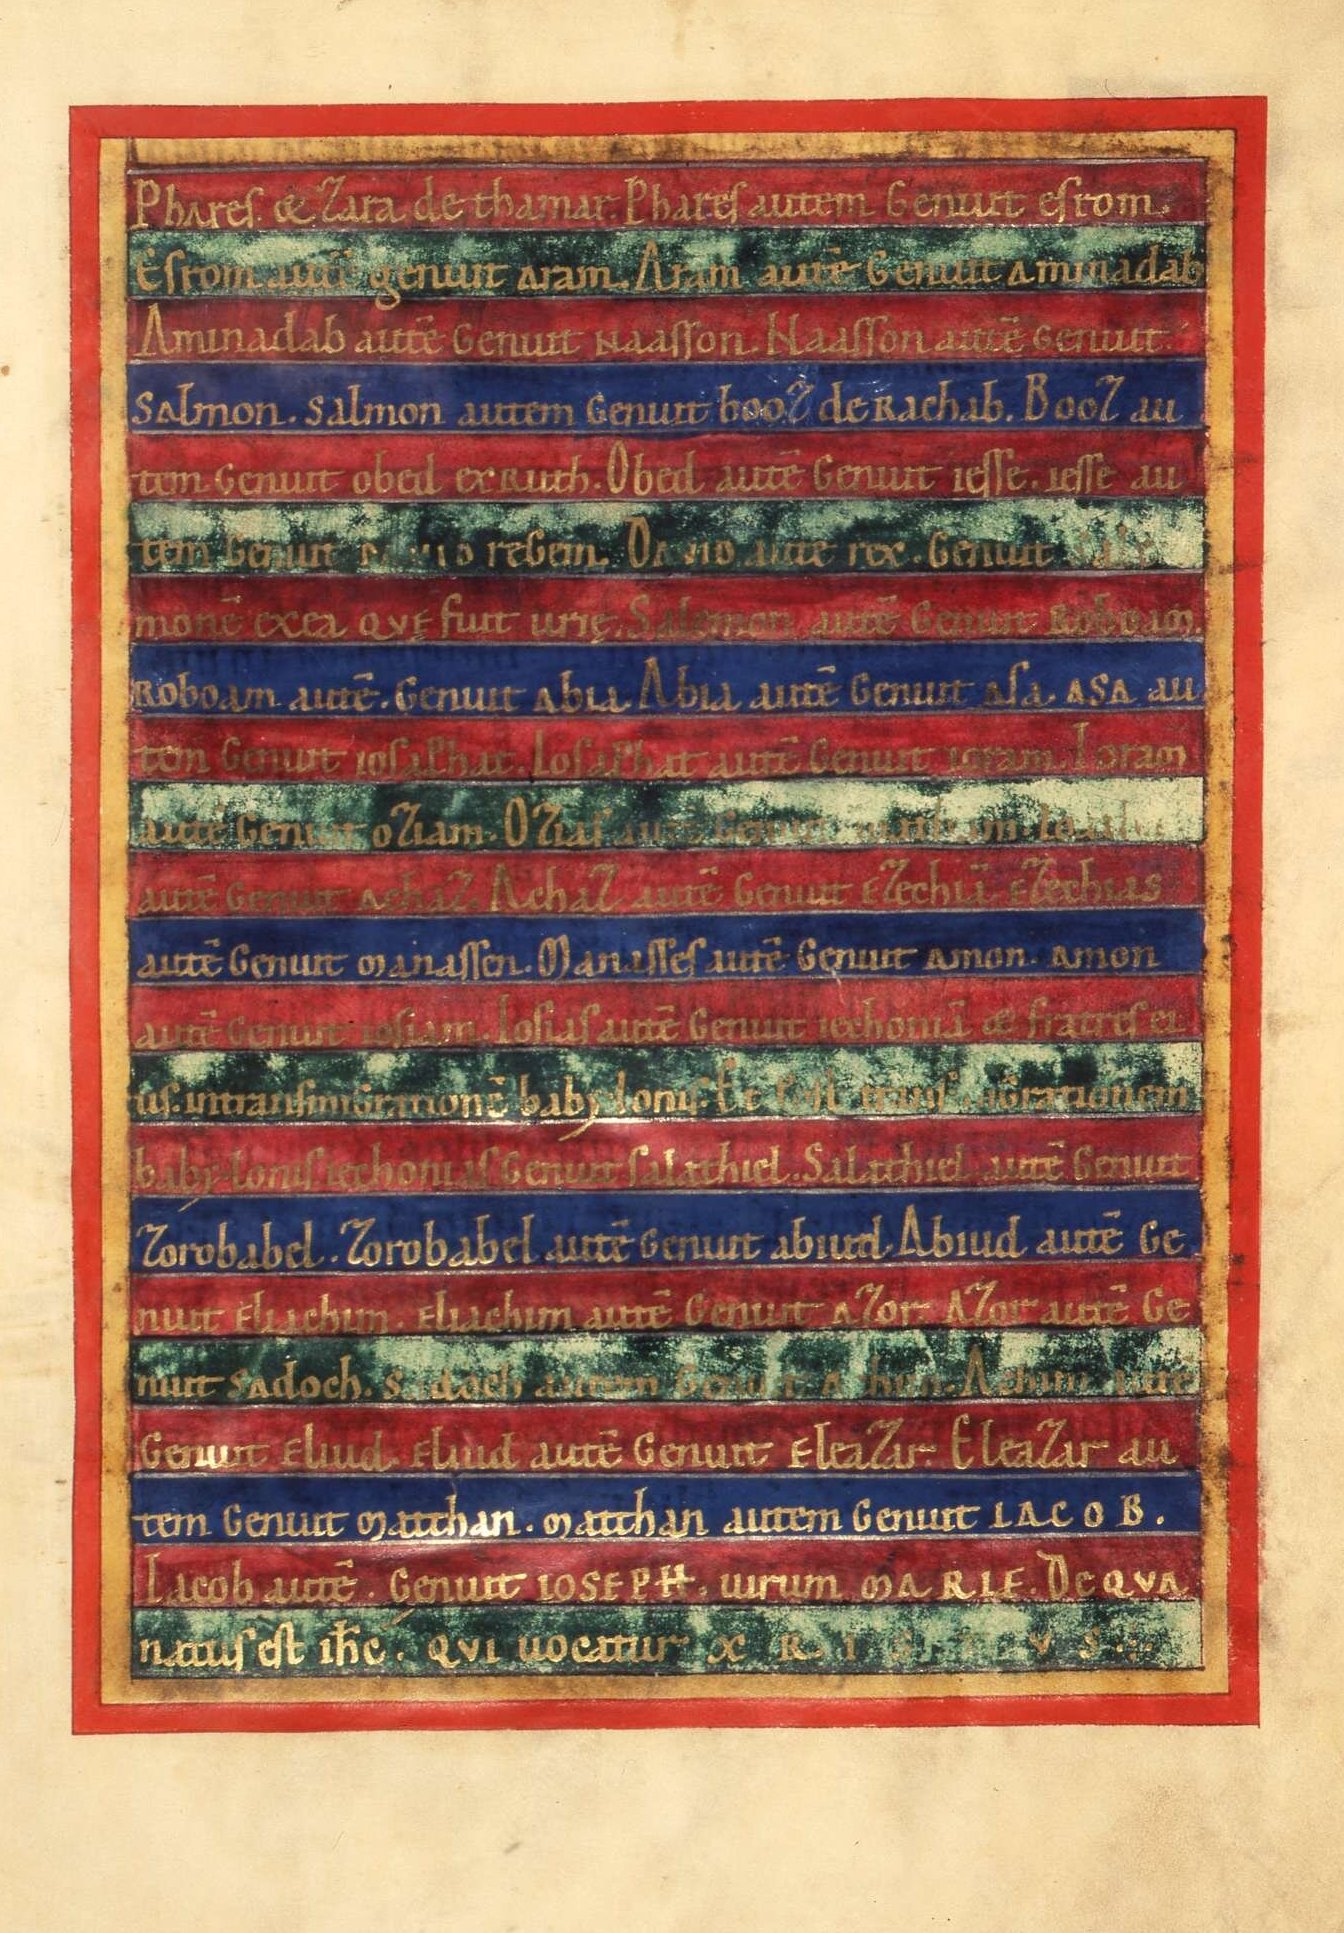 Phares. & Zara de thamar. Phares autem Genuit esrom.
Esrom autē genuit aram. Aram autē Genuit Aminadab
Aminadab autē Genuit Naasson. Naasson autē Genuit.
Salmon. Salmon autem Genuit booz de Rachab. Booz au
tem Genuit obed ex Ruth. Obed autē Genuit iesse. iesse au
tem Genuit DAVID reGem. DAVID autē rex. Genuit
monē ex ea QVĘ fuit urię. Salomon autē Genuit Roboam.
Roboam autē. Genuit Abia. Abia autē Genuit Asa. ASA au
tem Genuit iosaPhat. IosaPhat autē Genuit ioram. Ioram
autē Genuit oziam. Ozias autē Genuit
autē Genuit Achaz. Achaz autē Genuit Ezechiā. Ezechias
autē Genuit Manassen. Manasses autē Genuit Amon. Amon
autē Genuit iosiam. Iosias autē Genuit iechoniā & fratres ei
us. intransmiGrationē babylonis. Et transmiGrationem
babylonis iechonias Genuit salathiel. Salathiel autē Genuit
Zorobabel. Zorobabel autē Genuit abiud. Abiud autē Ge
nuit Eliachim. Eliachim autē Genuit Azor. Azor autē Ge
nuit Sadoch. Sadoch autem Genuit Achim autē
Genuit Eliud. Eliud autē Genuit Eleazar. Eleazar au
tem Genuit Matthan. Matthan autem Genuit IACOB.
Iacob autē. Genuit IOSEPH. uirum MARIE. De QVA
natus est ihc̄. QVI uocatur X R. I S. T. V S.